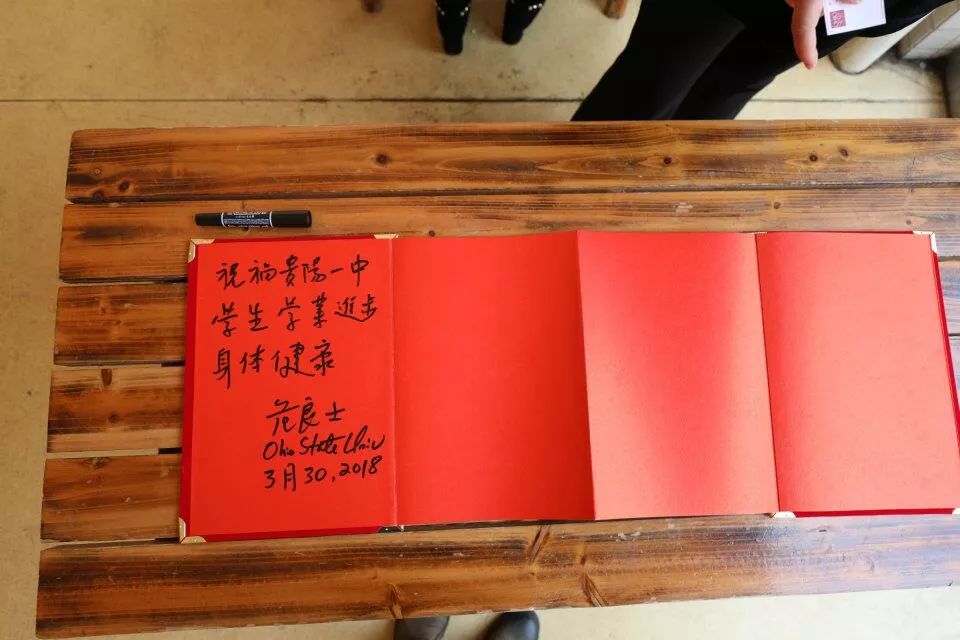 祝福貴陽一中
学生学業進步
身体健康
危良士
Ohio State Univ
3月30,2018